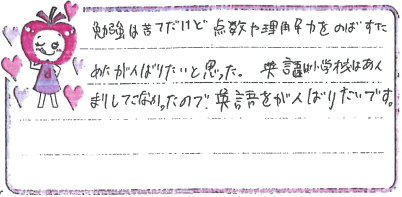 勉強は苦てだけど点数や理解力をのばすた
めにがんばりたいと思った。英語は小学校はあん
まりしてこなかったので英語をがんばりたいです。